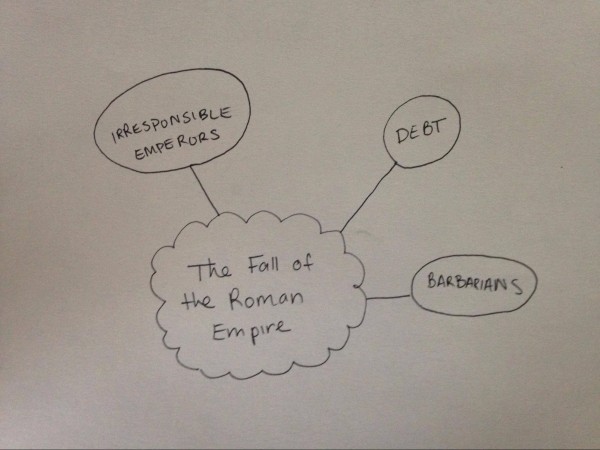 IRRESPONSIBLE
EMPERORS
DEBT
BARBARIANS
The Fall of
the Roman
Empire